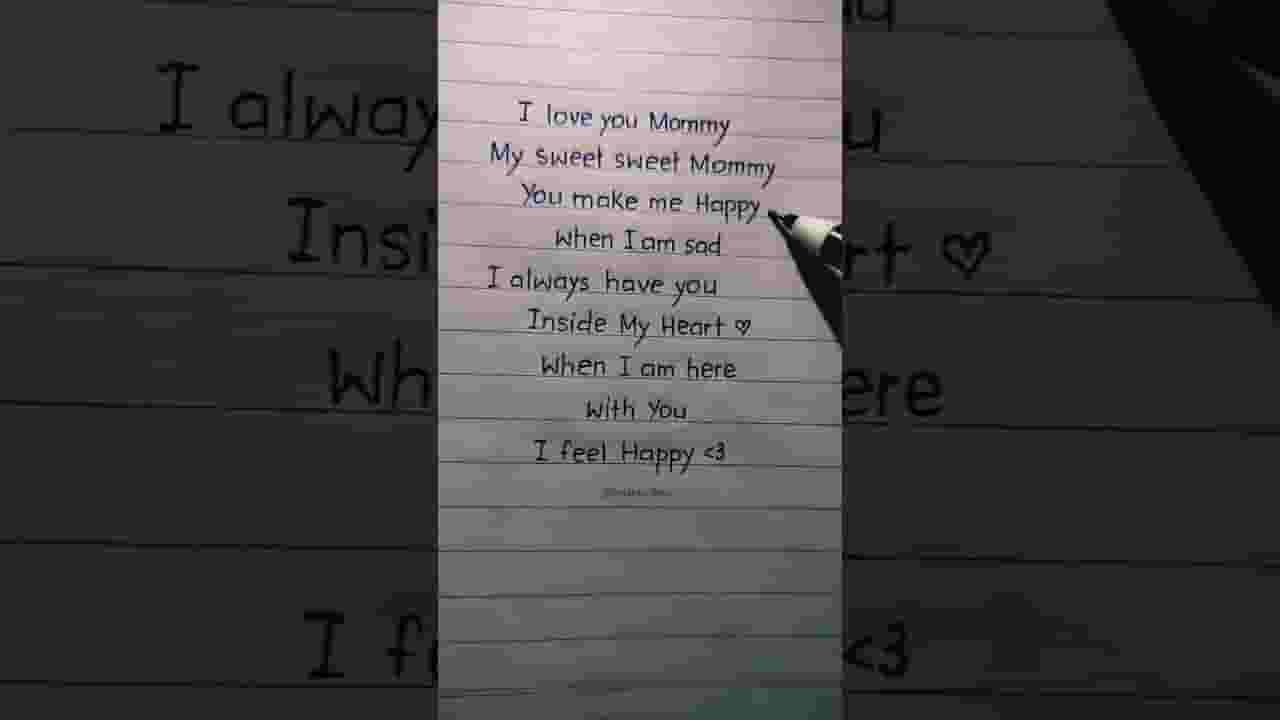 I love you Mommy
My sweet sweet Mommy
You make me Happy
When I am sad
I always have you
Inside My Heart ♡
When I am here
With You
I feel Happy <3